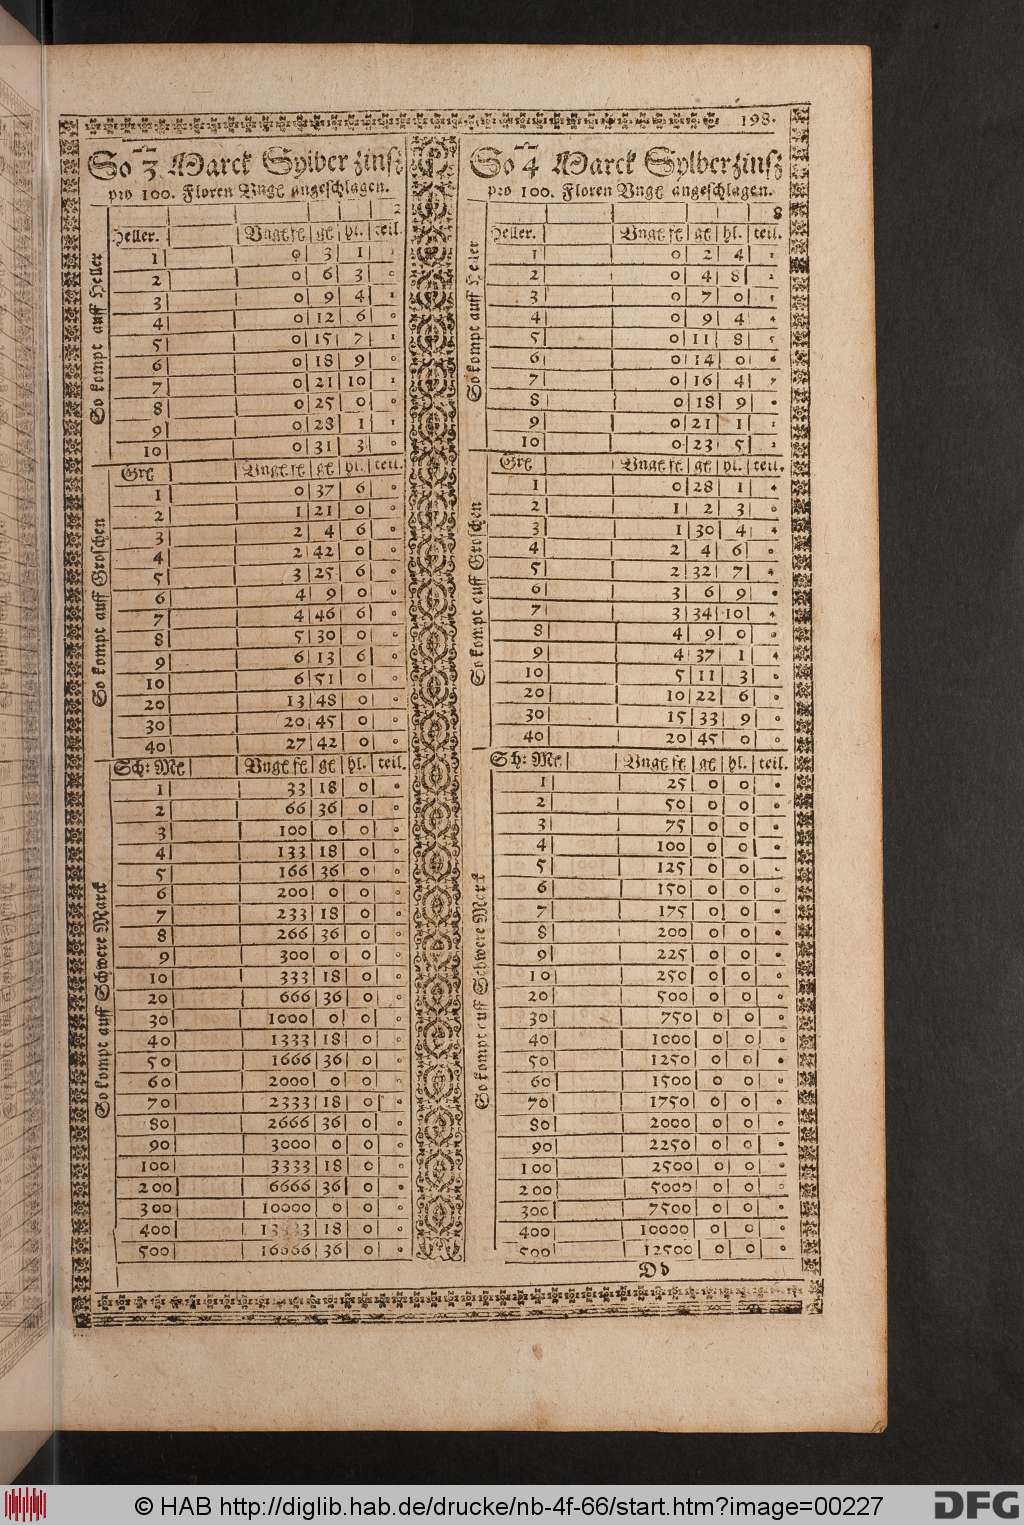 198.
So 3 Marck Sylber zinsz
pro 100. Floren Ungs angeschlagen.
2
Heller. | Ungs fs | gs | hl. | teil.
So kompt auff Heller
1 | 0 | 3 | 1 | 1
2 | 0 | 6 | 3 | 0
3 | 0 | 9 | 4 | 1
4 | 0 | 12 | 6 | 0
5 | 0 | 15 | 7 | 1
6 | 0 | 18 | 9 | 0
7 | 0 | 21 | 10 | 1
8 | 0 | 25 | 0 | 0
9 | 0 | 28 | 1 | 1
10 | 0 | 31 | 3 | 0
Grs | Ungs fs | gs | hl. | teil.
So kompt auff Groschen
1 | 0 | 37 | 6 | 0
2 | 1 | 21 | 0 | 0
3 | 2 | 4 | 6 | 0
4 | 2 | 42 | 0 | 0
5 | 3 | 25 | 6 | 0
6 | 4 | 9 | 0 | 0
7 | 4 | 46 | 6 | 0
8 | 5 | 30 | 0 | 0
9 | 6 | 13 | 6 | 0
10 | 6 | 51 | 0 | 0
20 | 13 | 48 | 0 | 0
30 | 20 | 45 | 0 | 0
40 | 27 | 42 | 0 | 0
Sch: Ms | Ungs fs | gs | hl. | teil.
So kompt auff Schwere Marck
1 | 33 | 18 | 0 | 0
2 | 66 | 36 | 0 | 0
3 | 100 | 0 | 0 | 0
4 | 133 | 18 | 0 | 0
5 | 166 | 36 | 0 | 0
6 | 200 | 0 | 0 | 0
7 | 233 | 18 | 0 | 0
8 | 266 | 36 | 0 | 0
9 | 300 | 0 | 0 | 0
10 | 333 | 18 | 0 | 0
20 | 666 | 36 | 0 | 0
30 | 1000 | 0 | 0 | 0
40 | 1333 | 18 | 0 | 0
50 | 1666 | 36 | 0 | 0
60 | 2000 | 0 | 0 | 0
70 | 2333 | 18 | 0 | 0
80 | 2666 | 36 | 0 | 0
90 | 3000 | 0 | 0 | 0
100 | 3333 | 18 | 0 | 0
200 | 6666 | 36 | 0 | 0
300 | 10000 | 0 | 0 | 0
400 | 13333 | 18 | 0 | 0
500 | 16666 | 36 | 0 | 0
So 4 Marck Sylber zinsz
pro 100. Floren Ungs angeschlagen.
8
Heller. | Ungs fs | gs | hl. | teil.
So kompt auff Heller
1 | 0 | 2 | 4
2 | 0 | 4 | 8
3 | 0 | 7 | 0
4 | 0 | 9 | 4
5 | 0 | 11 | 8
6 | 0 | 14 | 0
7 | 0 | 16 | 4
8 | 0 | 18 | 9
9 | 0 | 21 | 1
10 | 0 | 23 | 5
Grs | Ungs fs | gs | hl. | teil.
So kompt auff Groschen
1 | 0 | 28 | 1
2 | 1 | 2 | 3
3 | 1 | 30 | 4
4 | 2 | 4 | 6
5 | 2 | 32 | 7
6 | 3 | 6 | 9
7 | 3 | 34 | 10
8 | 4 | 9 | 0
9 | 4 | 37 | 1
10 | 5 | 11 | 3
20 | 10 | 22 | 6
30 | 15 | 33 | 9
40 | 20 | 45 | 0 | 0
Sch: Ms | Ungs fs | gs | hl. | teil.
So kompt auff Schwere Marck
1 | 25 | 0 | 0 | 0
2 | 50 | 0 | 0 | 0
3 | 75 | 0 | 0 | 0
4 | 100 | 0 | 0 | 0
5 | 125 | 0 | 0 | 0
6 | 150 | 0 | 0 | 0
7 | 175 | 0 | 0 | 0
8 | 200 | 0 | 0 | 0
9 | 225 | 0 | 0 | 0
10 | 250 | 0 | 0 | 0
20 | 500 | 0 | 0 | 0
30 | 750 | 0 | 0 | 0
40 | 1000 | 0 | 0 | 0
50 | 1250 | 0 | 0 | 0
60 | 1500 | 0 | 0 | 0
70 | 1750 | 0 | 0 | 0
80 | 2000 | 0 | 0 | 0
90 | 2250 | 0 | 0 | 0
100 | 2500 | 0 | 0 | 0
200 | 5000 | 0 | 0 | 0
300 | 7500 | 0 | 0 | 0
400 | 10000 | 0 | 0 | 0
500 | 12500 | 0 | 0 | 0
Dd
© HAB http://diglib.hab.de/drucke/nb-4f-66/start.htm?image=00227
DFG